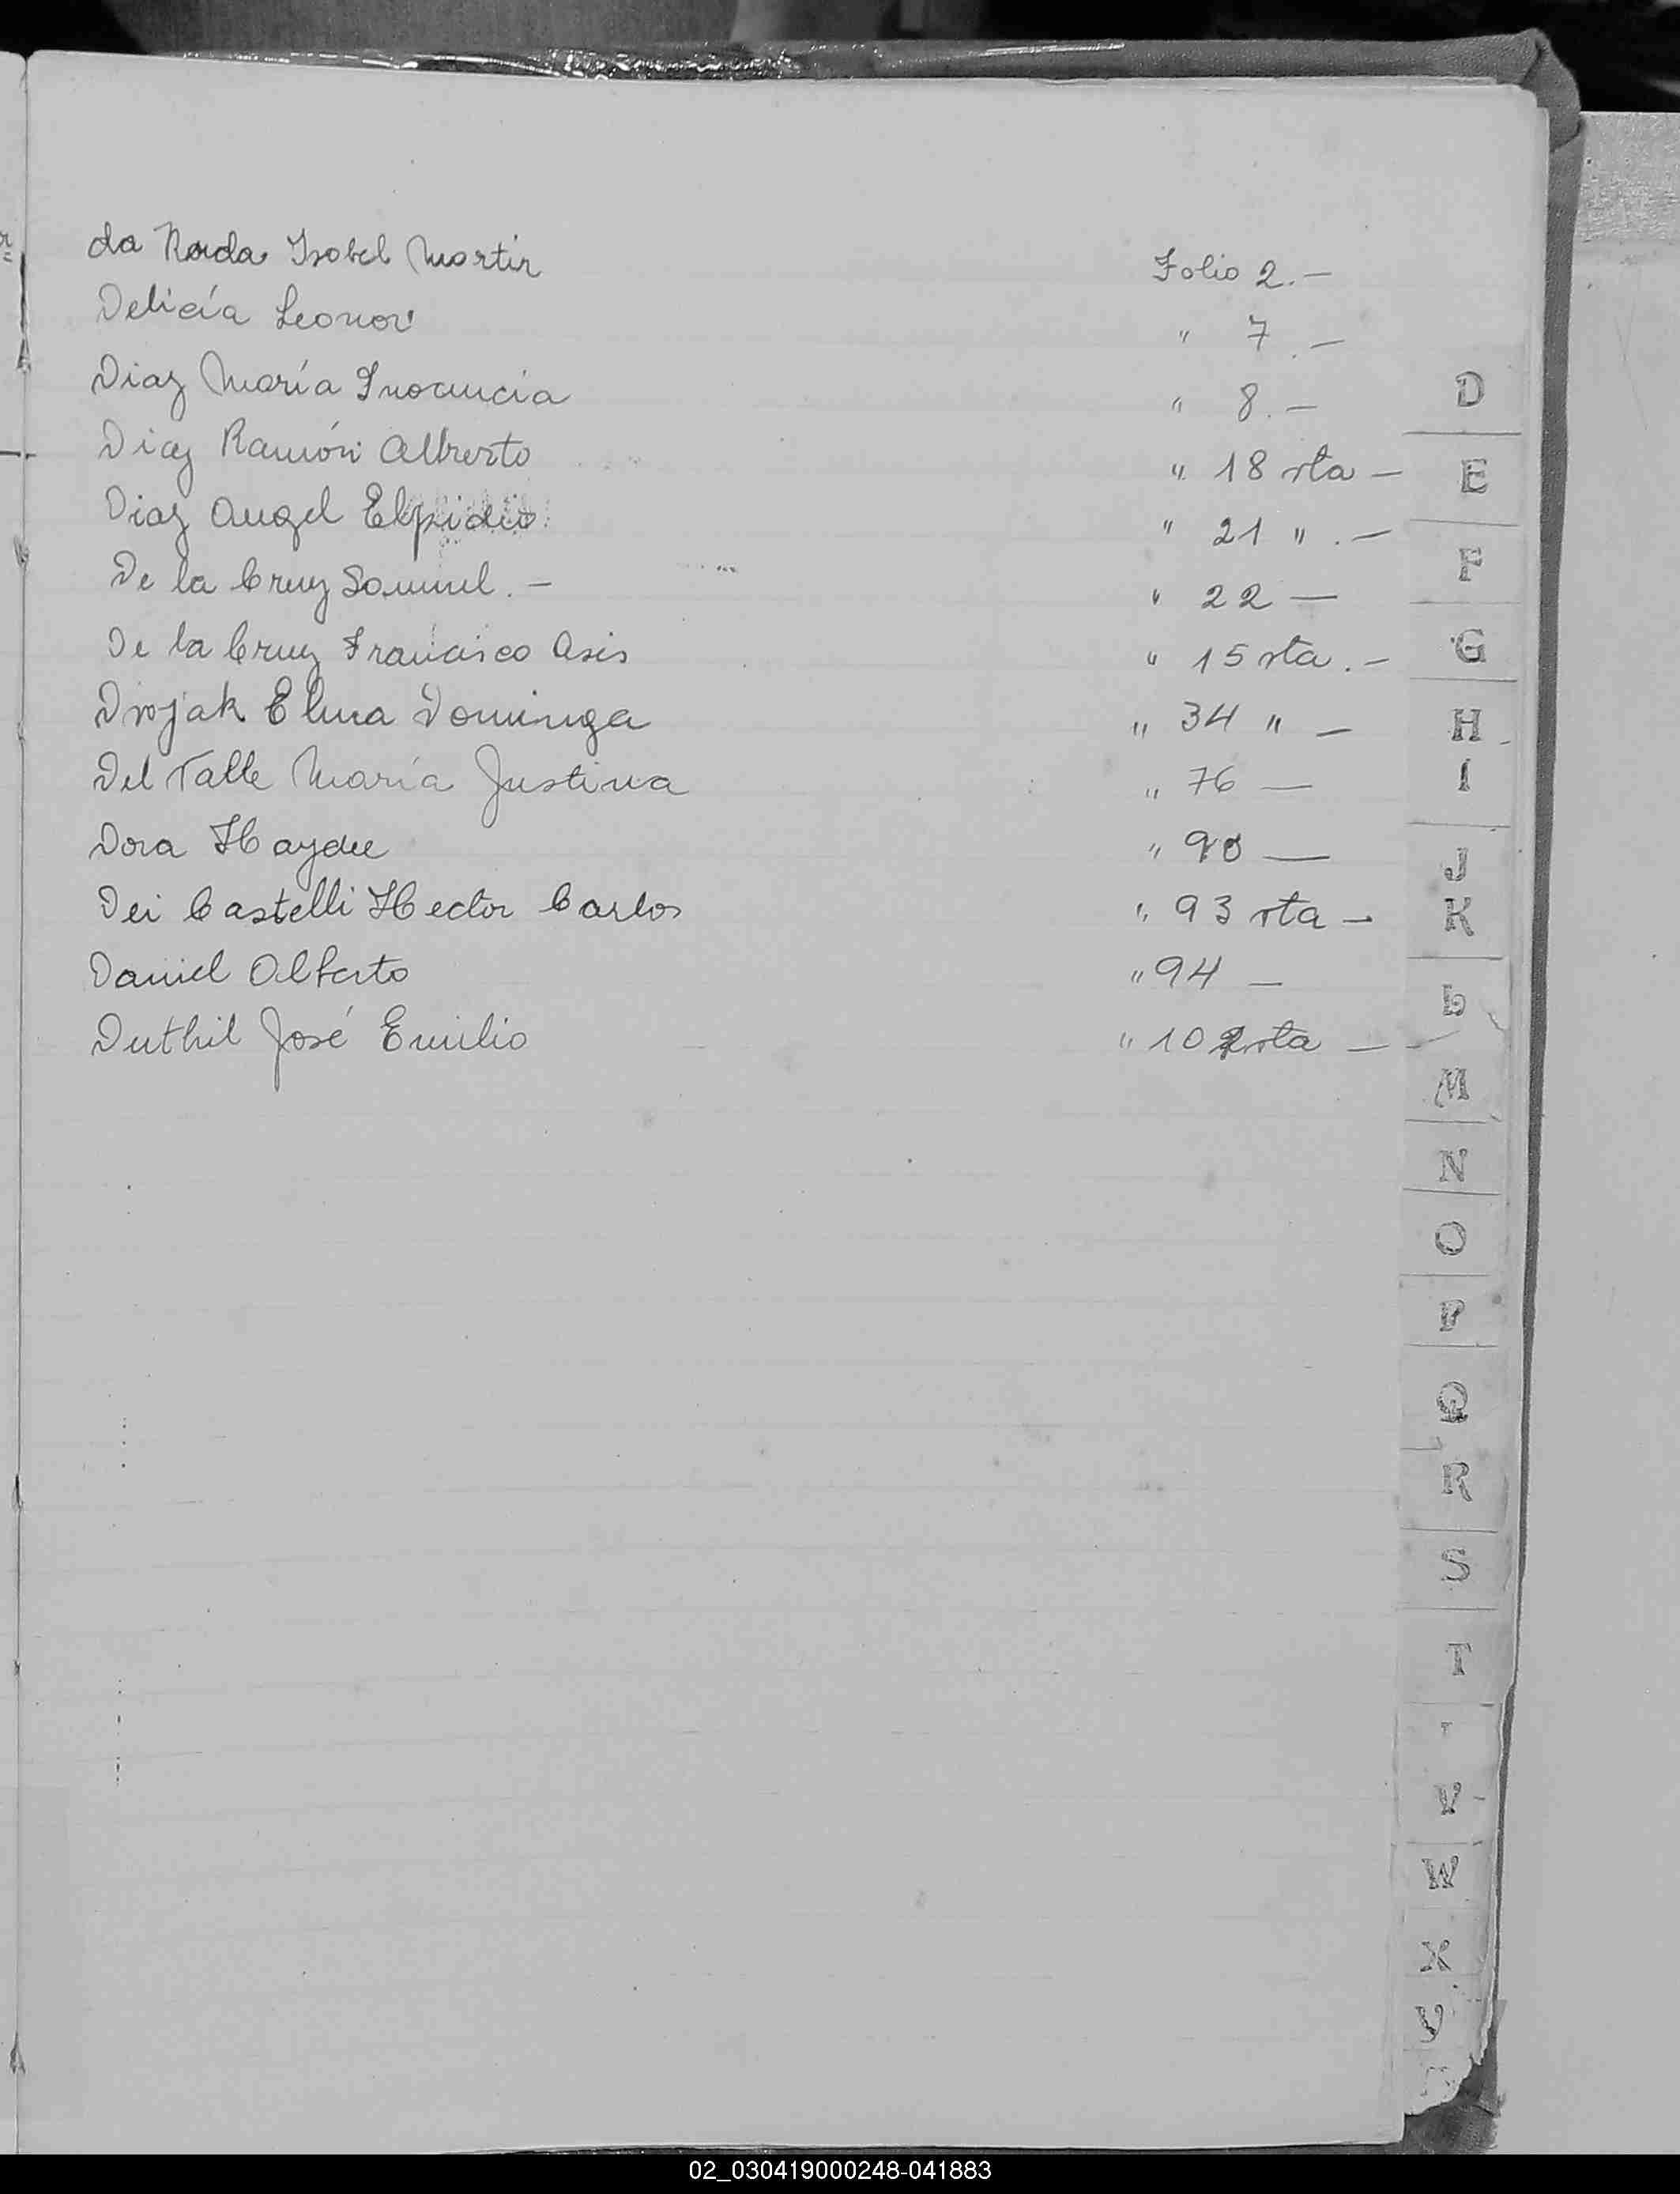 da Isabel Martir Folio 2.—
Delicía Leonor " 7.—
Diaz María Inocencia " 8.—
Diaz Ramón Alberto " 18 vta —
Diaz Angel Elpidio " 21 " .—
De la Cruz Samuel.— " 22 —
De la Cruz Francisco Asis " 15 vta.—
Drojak Elma Dominga " 34 " —
Del Valle María Justina " 76 —
Dora Haydee " 90 —
Dei Castelli Hector Carlos " 93 vta —
Daniel Alberto " 94 —
Duthil José Emilio " 102 vta —
D
E
F
G
H
I
J
K
L
M
N
O
P
Q
R
S
T
V
W
X
Y
02_030419000248-041883